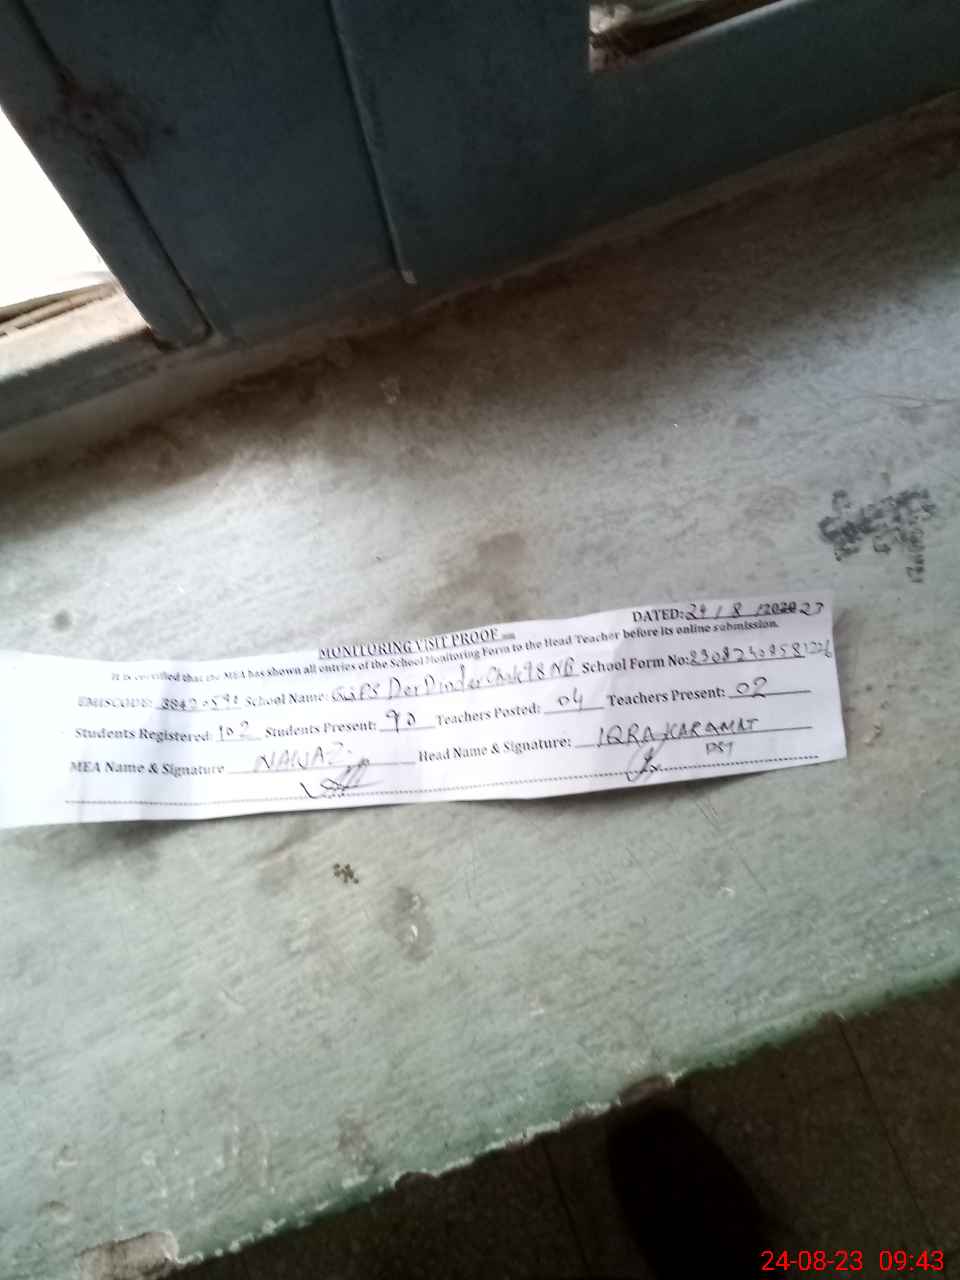 MONITORING VISIT PROOF
DATED: 24 / 8 /202023
It is certified that the MEA has shown all entries of the School Monitoring Form to the Head Teacher before its online submission.
EMISCODE: School Name: GGPS Der Pinder Chak 98 NB School Form No:
Students Registered: 102 Students Present: 90 Teachers Posted: 04 Teachers Present: 02
MEA Name & Signature NAWAZ Head Name & Signature: IQRA KARAMAT
PST
24-08-23 09:43